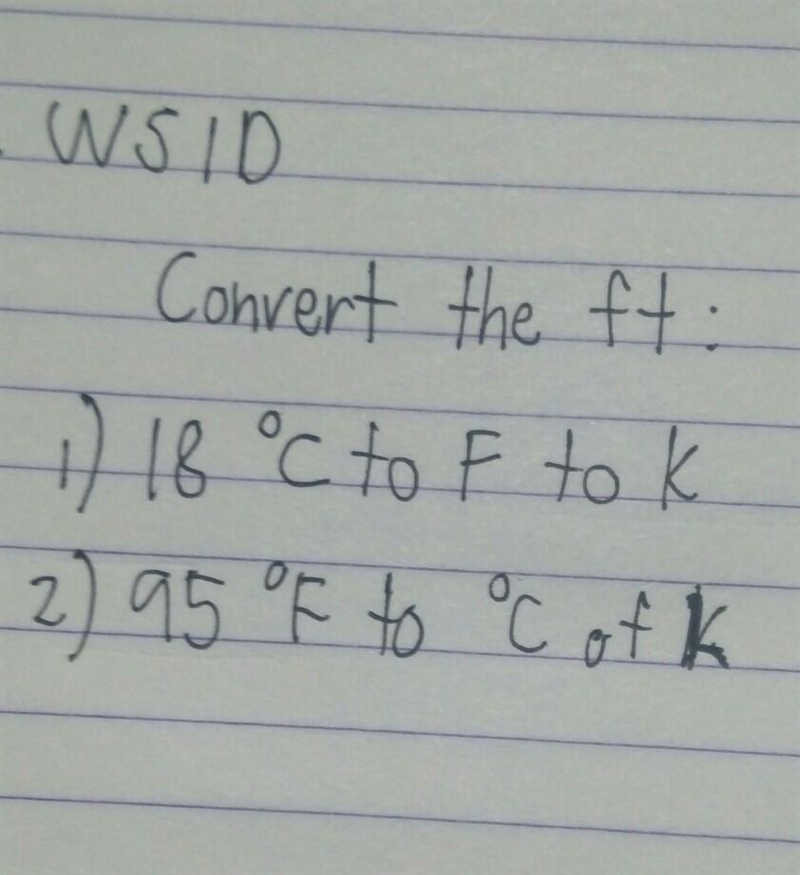 WS1D
Convert the ft:
1) 18 °C to F to K
2) 95 °F to °C of K